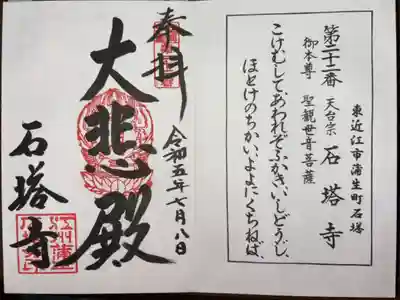 東近江市蒲生町石塔
第二十二番 天台宗 石塔寺
御本尊 聖観世音菩薩
こけむしてあわれぞふかきいしどうじ
ほとけのちかいよよにくちねば
奉拝
令和五年七月八日
大悲殿
石塔寺